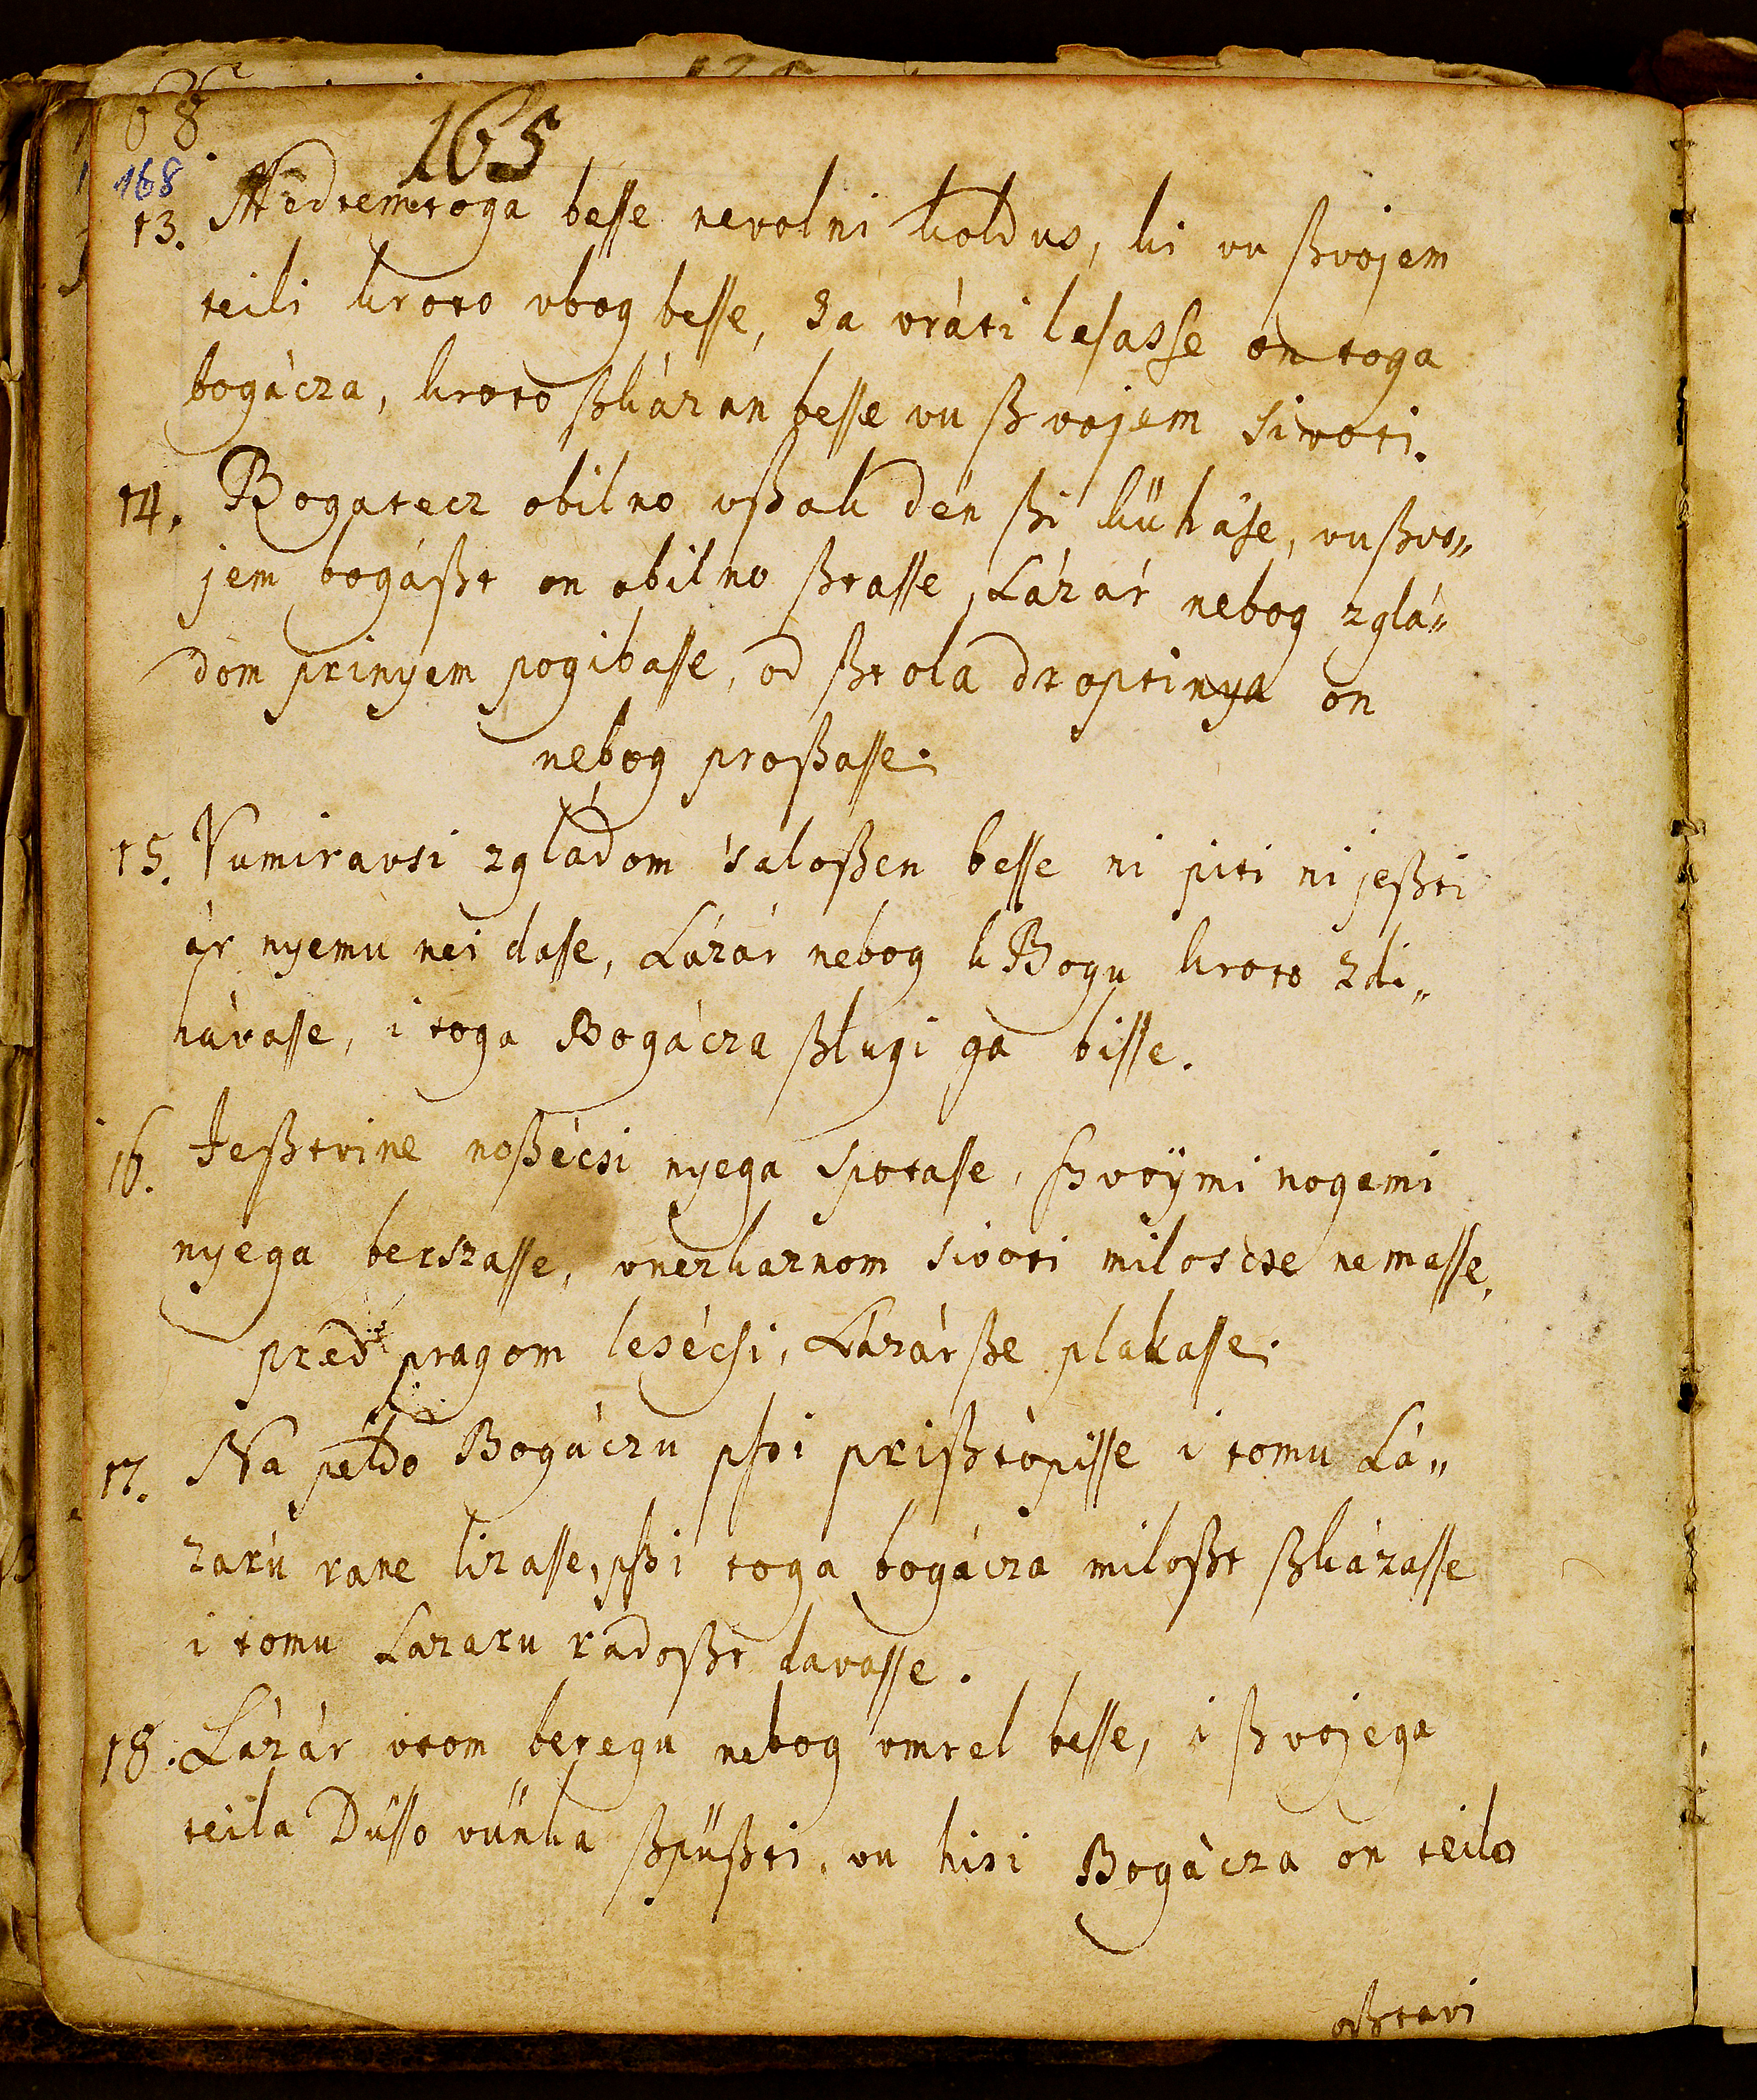 68
165
168
13. Medtemtoga besse nevolni koldus, ki vu ßvojem
teili kroto vbog besse, Za vráti lesasse on toga
bogácza, kroto ßkázan besse vu ßvojem sivoti.
14. Bogatecz obilno vßak dén ßi kühase, vu ßvo„
jem bogáßt on obilno ßtasse, Lázár nebog zglá„
dóm prinyem pogibasse, od ßtola droptinya on
nebog proßasse.
15. Vumiravsi zgládom 'saloßen besse ni piti ni jeßti
ár nyemu nei dasse, Lázár nebog k Bogu kroto zdi„
hávasse, i toga Bogácza ßlugi ga bisse.
16. Jeßtvine noßécsi nyega spotasse, ßvoÿmi nogami
nyega berszasse, vnezkaznom sivoti miloscse nemasse,
pred pragom lesécsi, Lázár ße plakasse.
17. Na példo Bogáczu pßi prißtópisse i tomu Lá„
zarú rane lizasse, pßi toga bogácza miloßt ßkázasse
i tomu Lazaru radoßt davasse.
18. Lázár vtom beregu nebog vmrel besse, i ßvojega
teila Düsso vünka ßpüßti, vu hisi Bogácza on teilo
oßtavi